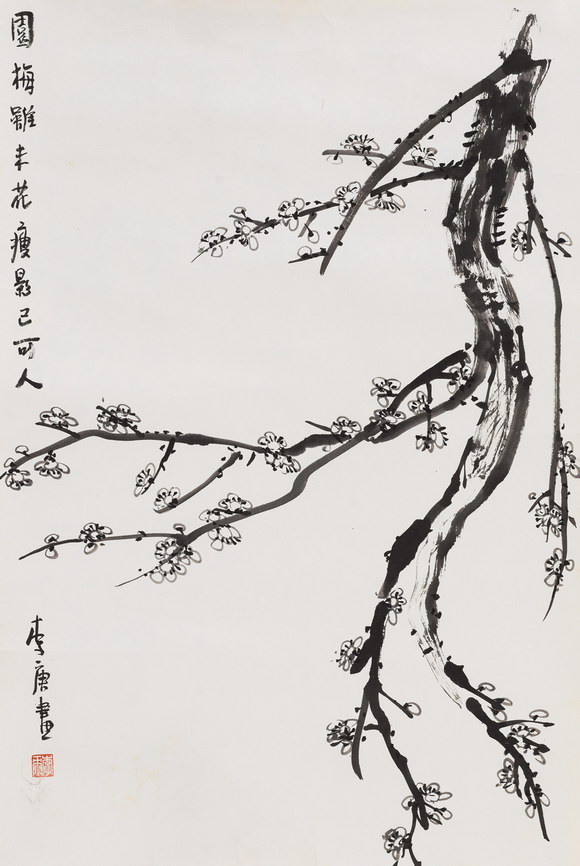 園梅雖未花瘦影已可人
李庚畫